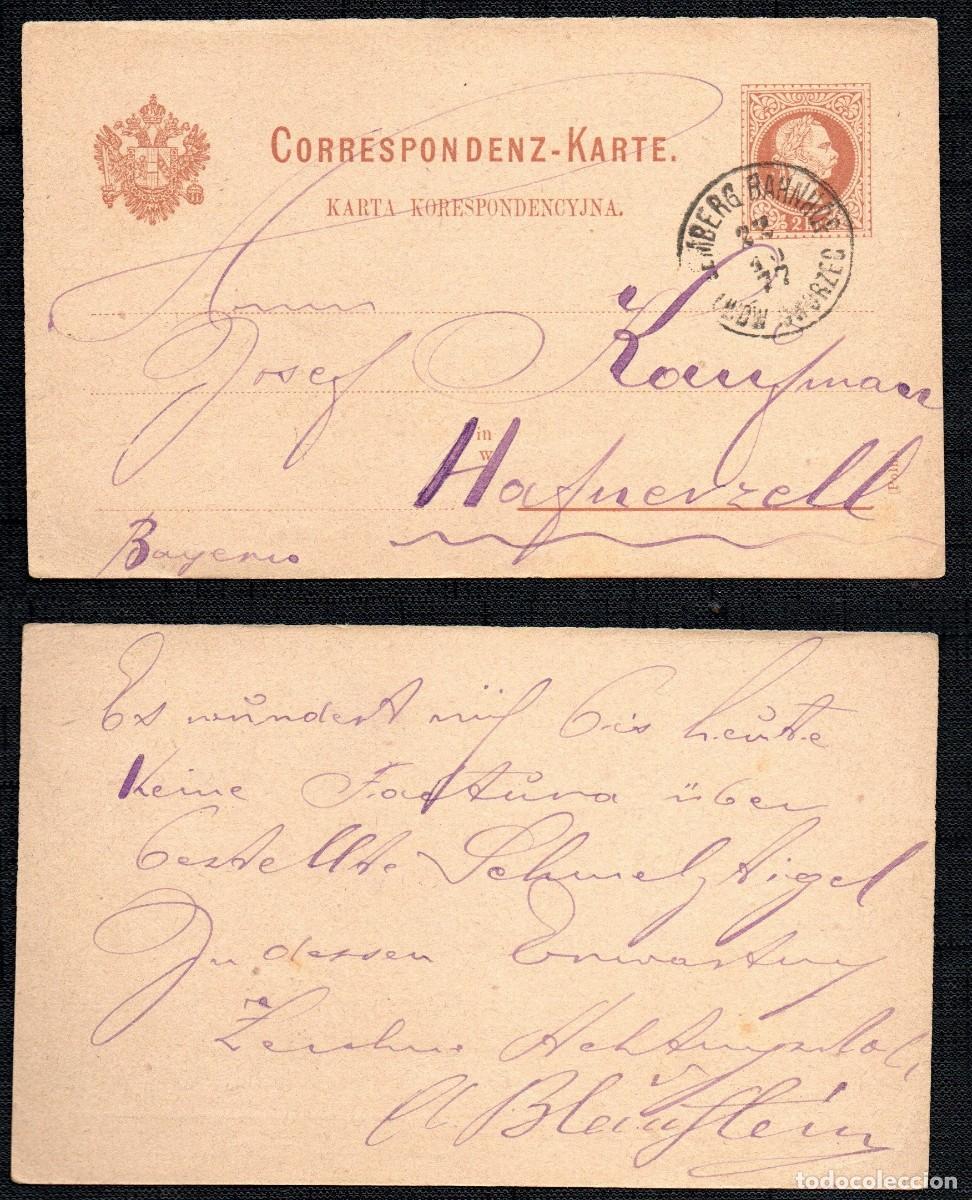 CORRESPONDENZ-KARTE.
KARTA KORESPONDENCYJNA.
2
LEMBERG BAHNHOF
LWÓW DWORZEC
Herrn
Josef Kaufman
in
w
Hafnerzell
Bayern
Es wundert mich bis heute
keine Factura über
bestellte Schmelztigel
In dessen Erwartung
Zeichne Achtungsvoll
Blaustein
todocoleccion